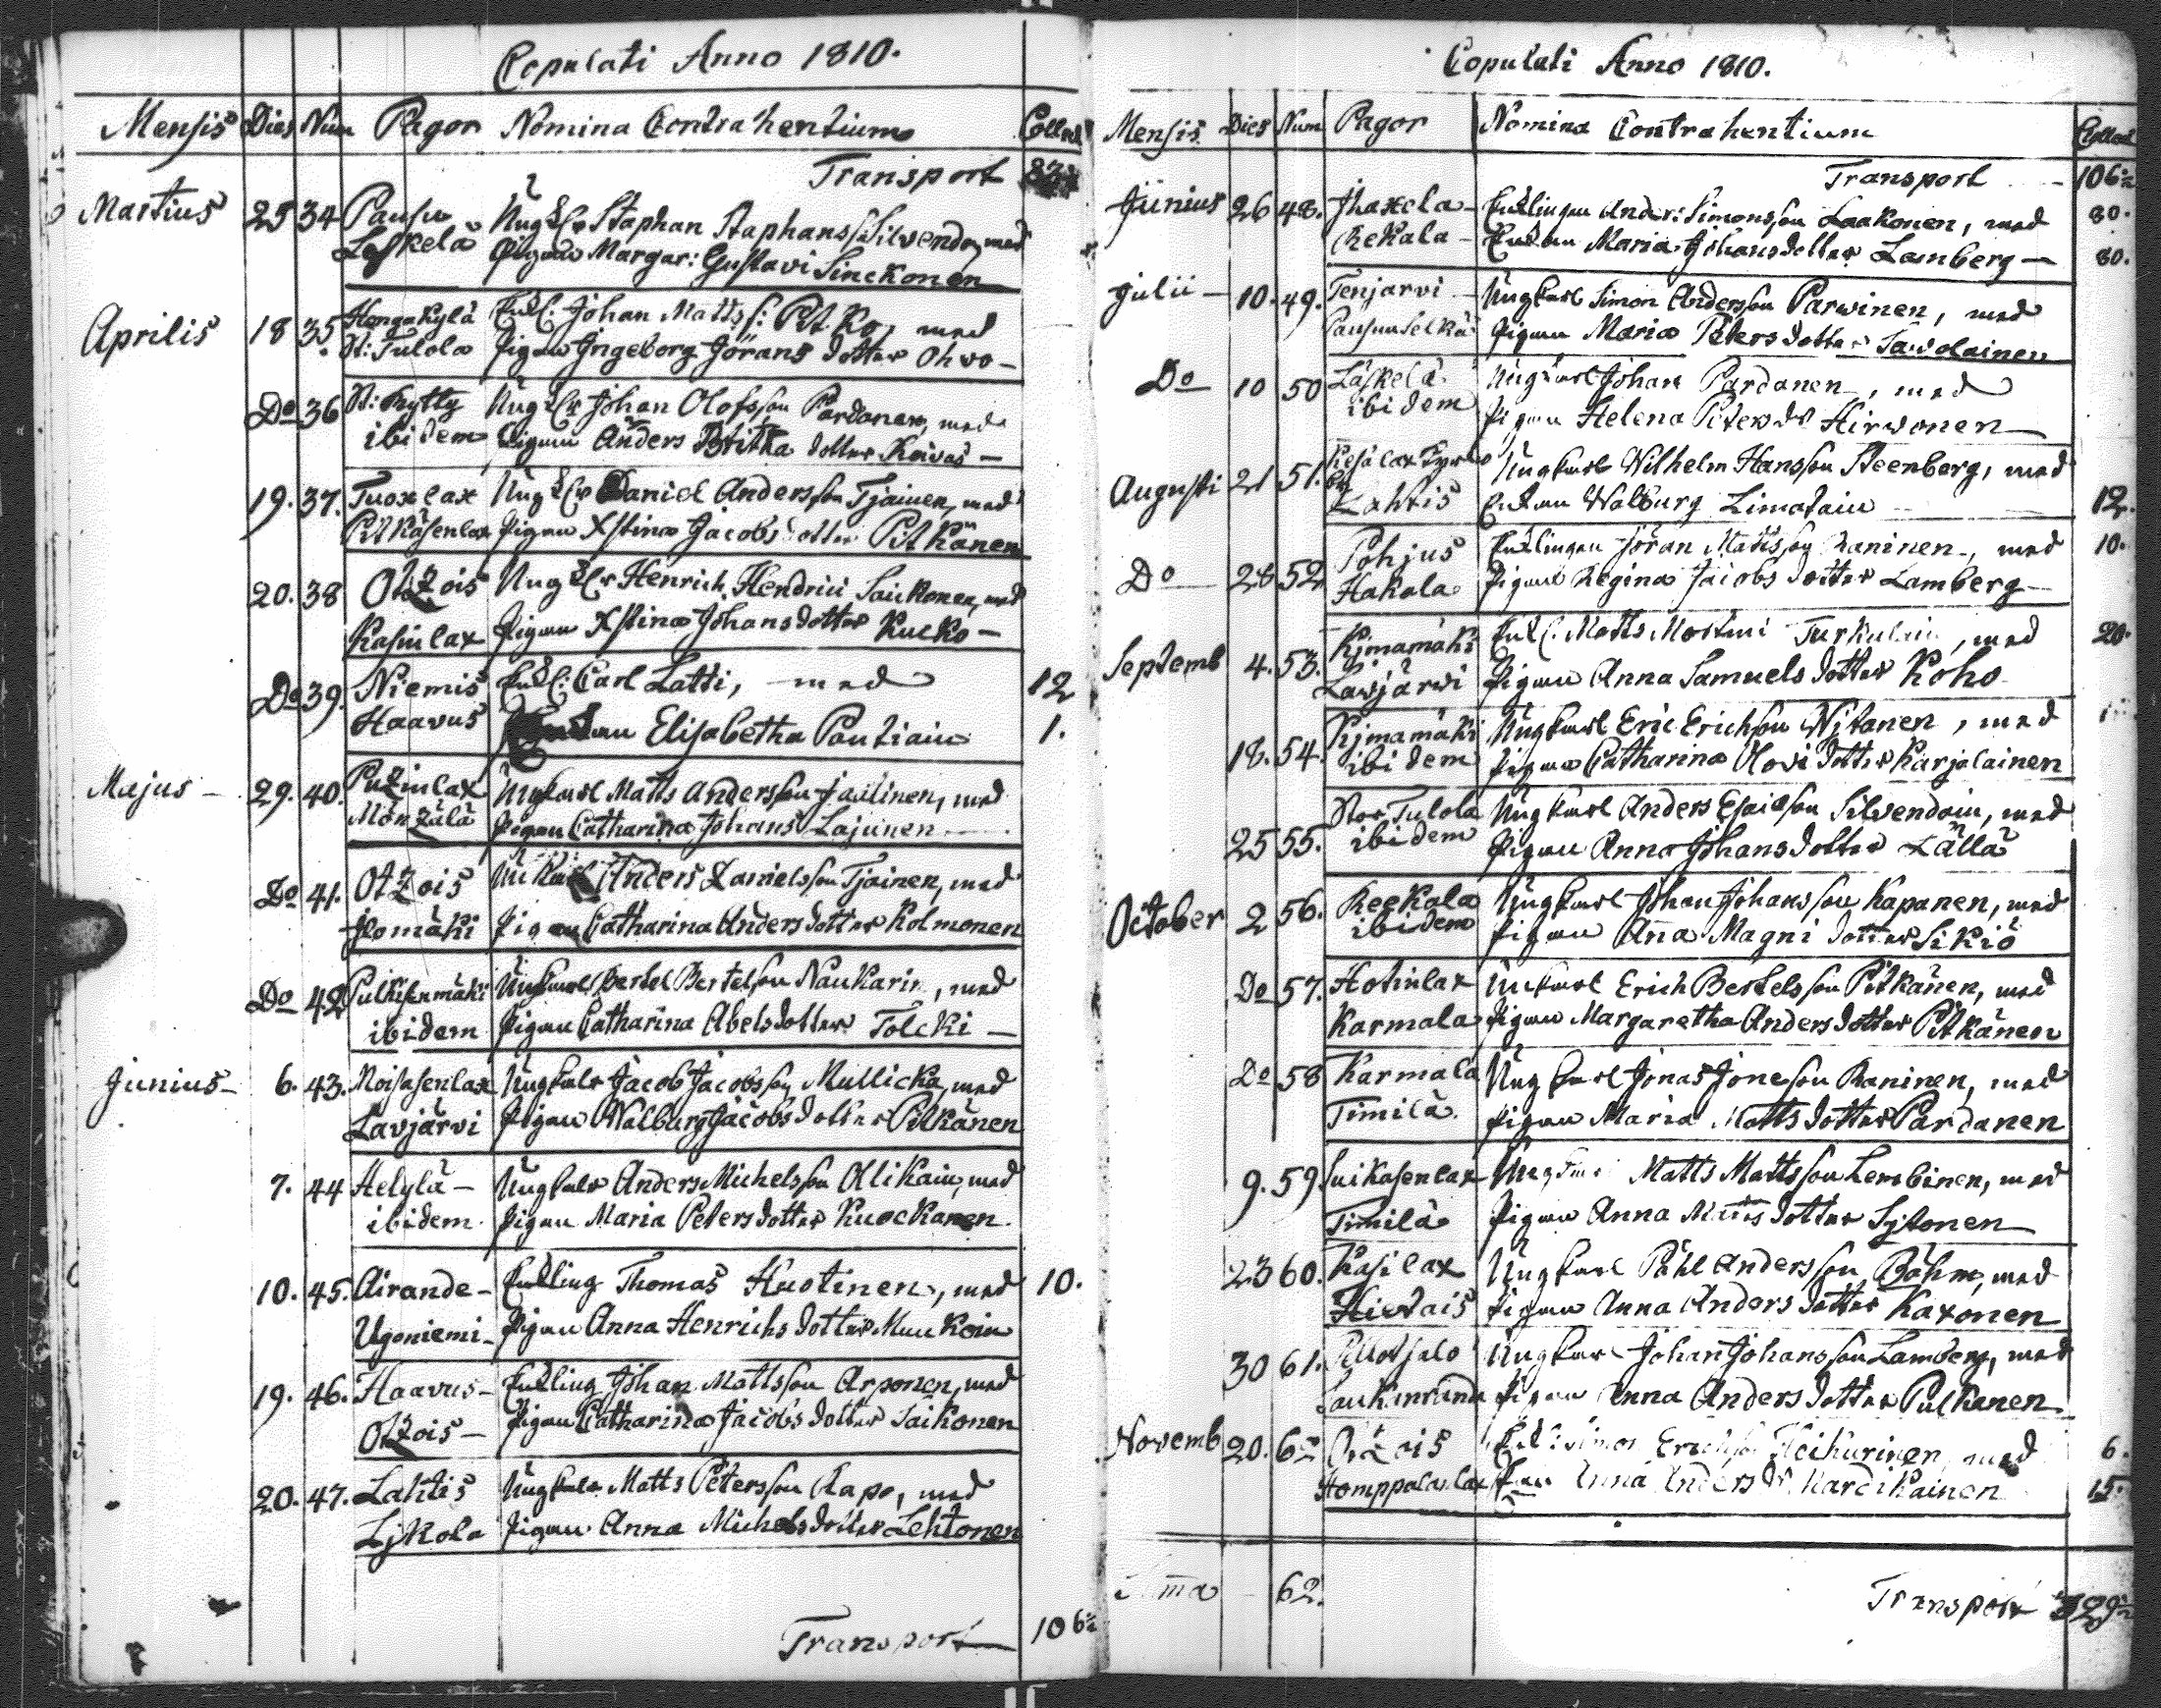 Copulati Anno 1810.
Mensis Dies Num Pagor Nomina Contrahentium Collect
Transport
Martius 25 34 Pausu Ungk:n Staphan Staphanss: Silvendo, med
Leskelä Pigan Margar: Gustavi Sinckonen
Aprilis 18 35. Hongakylä Enkl: Johan Matts s: Pitko, med
St: Tulola Pigan Ingeborg Jörans dotter Ohvo
Do 36 St: Rytty Ungk:n Johan Olofsson Pardanen, med
ibidem Pigan Anders Britha dotter Koivas
19. 37. Tuoxlax Ungk:n Daniel Andersson Tjainen, med
Pitkäsenlax Pigan Xstina Jacobs dotter Pitkänen
20. 38 Otzois Ungk:n Henrich Hendrici Saukonen, med
Kasinlax Pigan Xstina Johans dotter Kucko
Do 39. Niemis Enkl: Carl Latti, med 12
Haavus Enkan Elisabetha Pautiain 1.
Majus 29. 40. Puzinlax Ungkarl Matts Andersson Jaulinen, med
Mönzälä Pigan Catharina Johans Lajunen
Do 41. Otzois Unkarl Anders Danielsson Tjainen, med
Jlomäki Pigan Catharina Anders dotter Kolmonen
Do 42 Pulkisenmäki Ungkarl Bertel Bertelson Naukarin, med
ibidem Pigan Catharina Abels dotter Tolcki
Junius 6. 43. Moisasenlax Ungkarl Jacob Jacobsson Mullicka, med
Lavjärvi Pigan Walburg Jacobs dotter Pitkänen
7. 44 Helylä Ungkarl Anders Michelsson Ollikain, med
ibidem. Pigan Maria Peters dotter Kuockanen.
10. 45. Airande Enkling Thomas Huotinen, med 10.
Ugoniemi Pigan Anna Henrichs dotter Muukoin
19. 46. Haavus Enkling Johan Mattsson Arponen, med
Otzois Pigan Catharina Jacobs dotter Saikonen
20. 47. Lahtis Ungkarl Matts Petersson Rapo, med
Ljkola Pigan Anna Michels dotter Lehtonen
Transport 106½
Copulati Anno 1810.
Mensis Dies Num Pagor Nomina Contrahentium Collect
Transport 106½
Junius 26 48. Jhaxela Enklingen Ander: Simonsson Laakonen, med 80.
Rekala Enkan Maria Johansdotter Lamberg 80.
Julii 10. 49. Tenjarvi Ungkarl Simon Andersson Parwinen, med
Pausunselkä Pigan Maria Petersdotter Sawolainen
Do 10 50 Läskelä Ungkarl Johan Pardanen, med
ibidem Pigan Helena Peters dr Hirwonen
Augusti 21 51. Ungkarl Wilhelm Hansson Steenberg, med
Lahtis Enkan Walburg Limatain 12.
Do 28 52 Pohjus Enklingen Jöran Mattsson Raninen, med 10.
Hakala Pigan Regina Jacobs dotter Lamberg
Septemb 4. 53. Kjmamäki Enkl: Matts Martini Turkulain, med 20.
Lavjärvi Pigan Anna Samuels dotter Koho
18. 54. Kjmamäki Ungkarl Eric Erichson Wjtanen, med
ibidem Pigan Catharina Olovi dotter Karjalainen
25 55. Stor Tulola Ungkarl Anders Esaiesson Silvendoin, med
ibidem Pigan Anna Johans dotter Lällä
October 2 56. Reekala Ungkarl Johan Johansson Kapanen, med
ibidem Pigan Anna Magni dotter Sikiö
Do 57. Hotinlax Unkarl Erich Bertelsson Pitkänen, med
Karmala Pigan Margaretha Anders dotter Pitkänen
Do 58 Karmala Ungkarl Jonas Joneson Raninen, med
Timilä. Pigan Maria Matts dotter Pardanen
9. 59. Suikasenlax Ungkarl Matts Mattsson Lembinen, med
Timilä Pigan Anna Matts dotter Sytonen
23 60. Kasilax Ungkarl Påhl Andersson Böhm, med
Hiedais Pigan Anna Anders dotter Kaxonen
30 61. Ungkarl Johan Johansson Lamberg, med
Laukunranda Pigan Anna Anders dotter Pulkanen
Novemb 20. 62 Otzois Enkl: Simon Erichson Heikurinen, med 6.
Homppalanlax Enkan Anna Anders dr Kardikainen 15.
Summa 62.
Transport